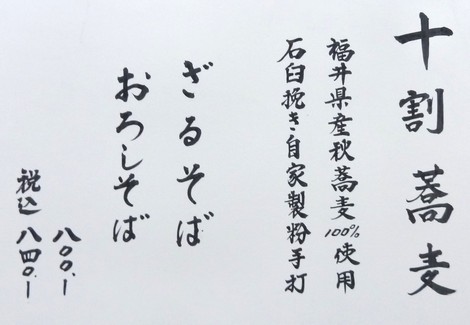 十割蕎麦
福井県産秋蕎麦100%使用
石臼挽き自家製粉手打
ざるそば
おろしそば
八〇〇.-
税込 八四〇.-